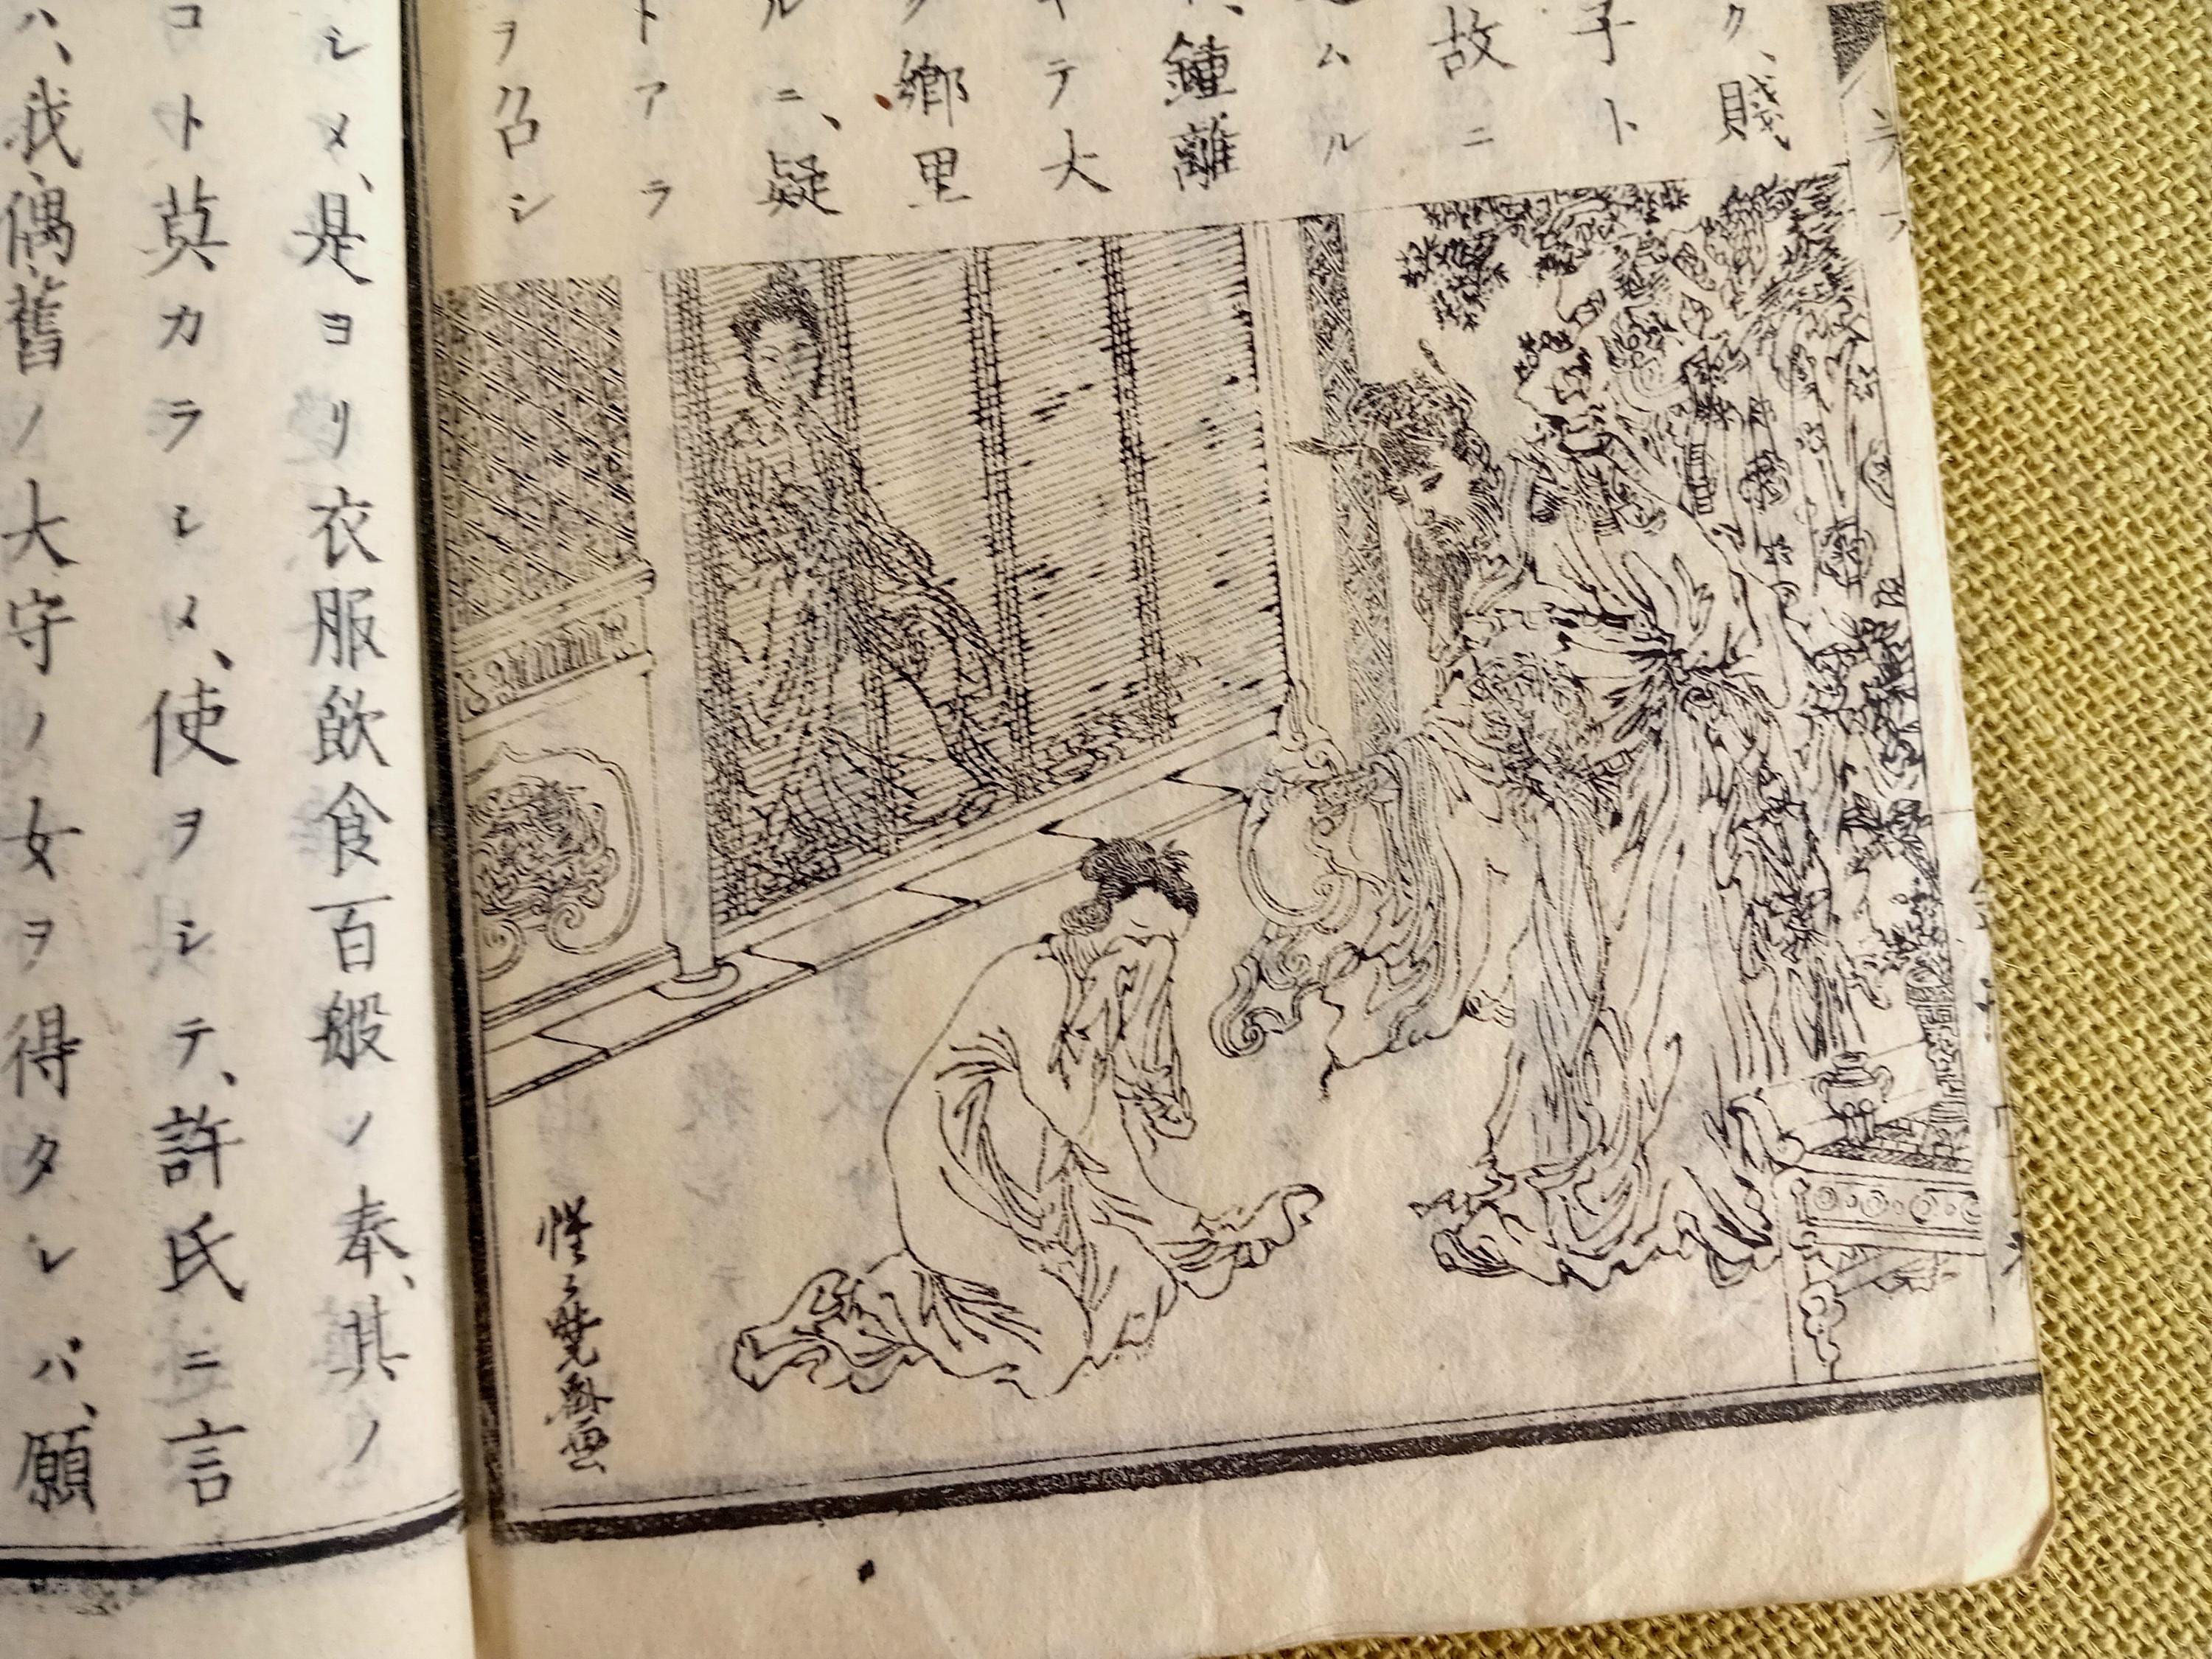 ク、賤
子ト
故ニ
ムル
鍾離
テ大
郷里
ルニ、疑
トアラ
ヲ召シ
惺々暁斎画
シメ、是ヨリ衣服飲食百般ノ奉、其ノ
コト莫カラシメ、使ヲシテ、許氏ニ言
ハ、我偶舊ノ大守ノ女ヲ得タレバ、願